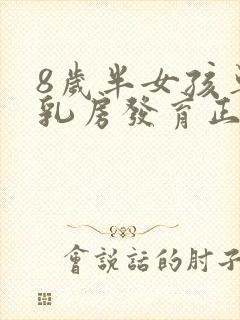 8歲半女孩
乳房發育正
會說話的肘子